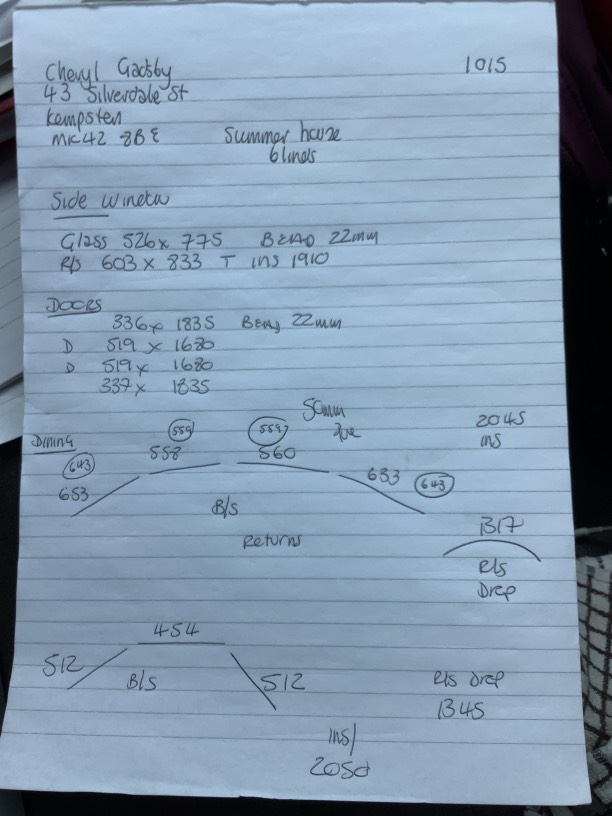 Cheryl Gadsby
1015
43 Silverdale St
Kempston
MK42 8BE
Summer house
blinds
Side Window
Glass 526 x 775 BEAD 22mm
R/s 603 x 833 T ins 1910
DOORS
336 x 1835 BEAD 22mm
D 519 x 1680
D 519 x 1680
337 x 1835
50mm
2045
ins
Dining
643
653
559
558
559
560
633
643
B/s
Returns
1317
R/s
Drop
454
512
B/s
512
R/s Drop
1345
ins/
2050